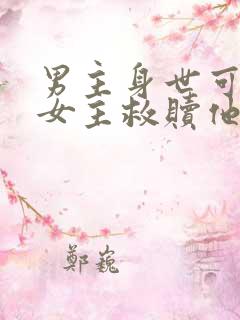 男主身世可
女主救贖他
鄭巍